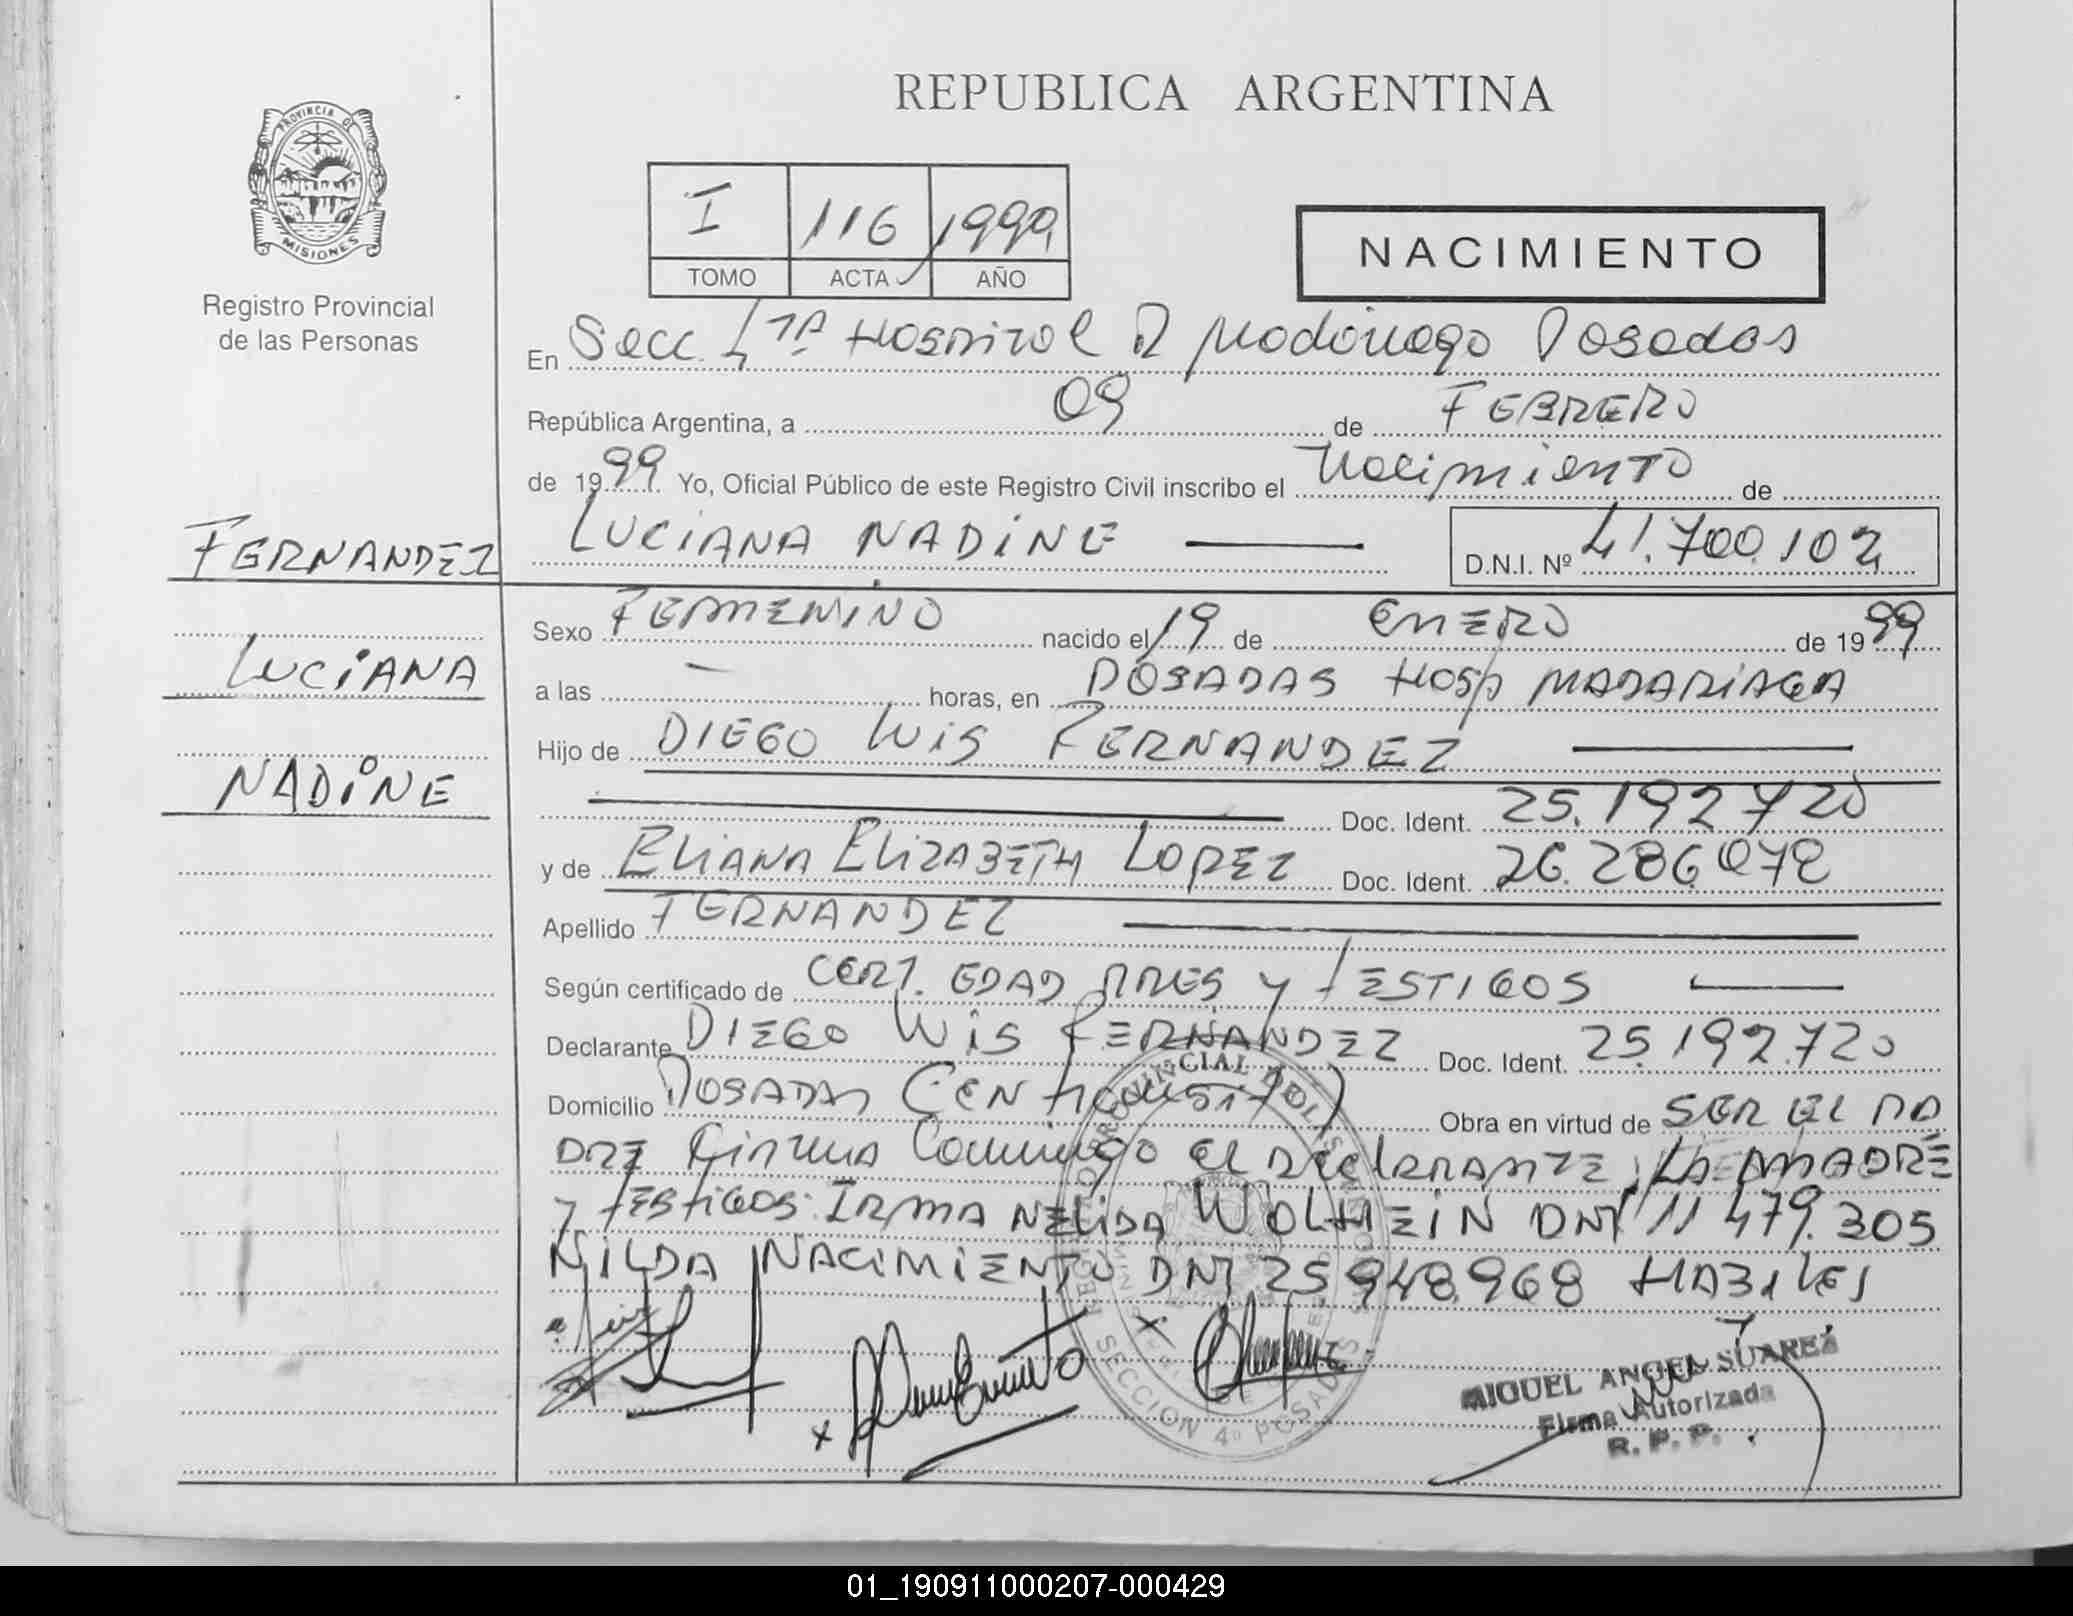 REPUBLICA ARGENTINA
PROVINCIA DE
MISIONES
Registro Provincial
de las Personas
I 116 1999
TOMO ACTA AÑO
NACIMIENTO
En Secc. 4ta Hospital R Madariaga Posadas
República Argentina, a 09 de FEBRERO
de 1999 Yo, Oficial Público de este Registro Civil inscribo el Nacimiento de
FERNANDEZ
LUCIANA NADINE
D.N.I. Nº 41.700.102
LUCIANA
NADINE
Sexo FEMENINO nacido el 19 de ENERO de 1999
a las — horas, en POSADAS HOSP MADARIAGA
Hijo de DIEGO LUIS FERNANDEZ
Doc. Ident. 25.192720
y de ELIANA ELIZABETH LOPEZ Doc. Ident. 26.286.078
Apellido FERNANDEZ
Según certificado de CERT. EDAD PRES Y TESTIGOS
Declarante DIEGO LUIS FERNANDEZ Doc. Ident. 25.192.720
Domicilio POSADAS Obra en virtud de SER EL PA
DRE Firma Conmigo el DECLARANTE, LA MADRE
y TESTIGOS: IRMA NELIDA WOLHEIN DNI 11 479.305
NILDA NACIMIENTO DNI 25.948.968 HABILES
SECCION 4º POSADAS
MIGUEL ANGEL SUAREZ
Firma Autorizada
R. P. P.
01_190911000207-000429